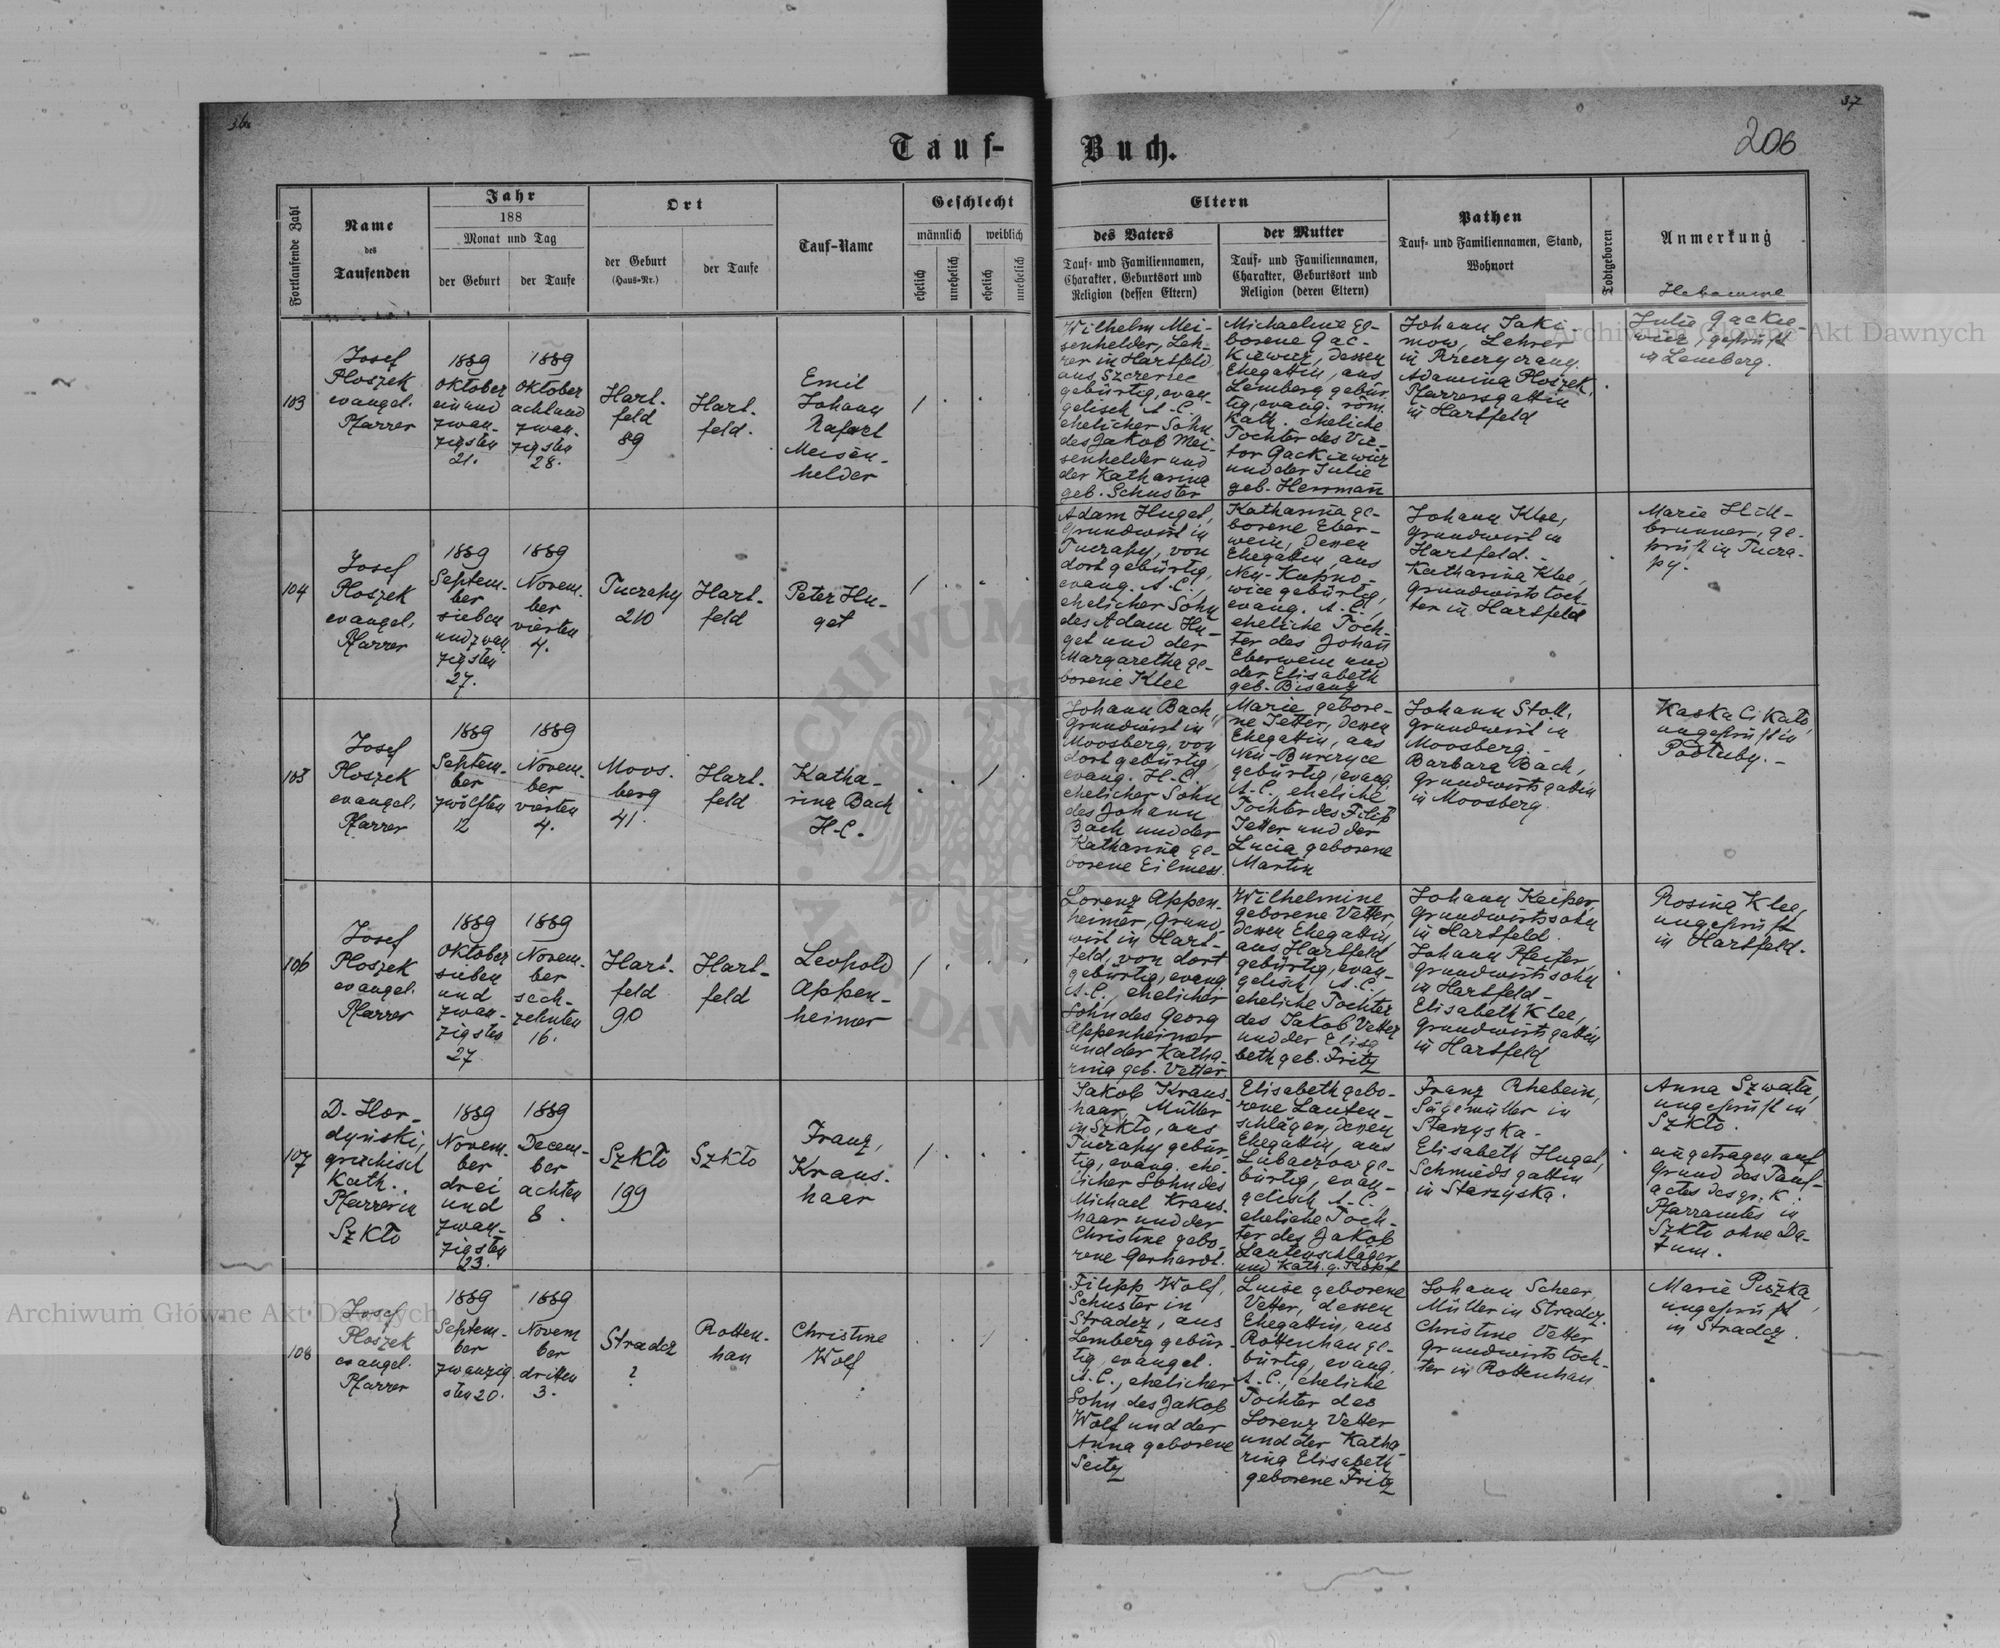 36
37
206
Tauf-Buch.
Fortlaufende Zahl
Name
des
Taufenden
Jahr
188
Monat und Tag
der Geburt
der Taufe
Ort
der Geburt
(Haus-Nr.)
der Taufe
Tauf-Name
Geschlecht
männlich
weiblich
ehelich
unehelich
ehelich
unehelich
Eltern
des Vaters
Tauf- und Familiennamen,
Charakter, Geburtsort und
Religion (dessen Eltern)
der Mutter
Tauf- und Familiennamen,
Charakter, Geburtsort und
Religion (deren Eltern)
Pathen
Tauf- und Familiennamen, Stand,
Wohnort
Todtgeboren
Anmerkung
Hebamme
103
Josef
Ploszek
evangel.
Pfarrer
1889
Oktober
einund
zwan-
zigsten
21.
1889
Oktober
achtund
zwan-
zigsten
28.
Hart-
feld
89
Hart-
feld.
Emil
Johann
Rafael
Meisen-
helder
Wilhelm Mei-
senhelder, Leh-
rer in Hartfeld
aus Szczerzec
gebürtig, evan-
gelisch A. C.,
ehelicher Sohn
des Jakob Mei-
senhelder und
der Katharina
geb. Schuster
Michaeline ge-
borene Gac-
kiewicz, dessen
Ehegattin, aus
Lemberg gebür-
tig, evang. röm.
Kath. eheliche
Tochter des Vic-
tor Gackiewicz
und der Julie
geb. Herrmann
Johann Jaki
mow, Lehrer
in
Adamina Ploszek,
Pfarrersgattin
in Hartfeld
Julie Gackie-
wicz, geprüft
in Lemberg.
104
Josef
Ploszek
evangel.
Pfarrer
1889
Septem-
ber
sieben
undzwan
zigsten
27.
1889
Novem-
ber
vierten
4.
Tuczapy
210
Hart-
feld
Peter Hu-
get
Adam Huget,
Grundwirt in
Tuczapy, von
dort gebürtig,
evang. A. C.,
ehelicher Sohn
des Adam Hu-
get und der
Margaretha ge-
borene Klee
Katharina ge-
borene Eber-
wein, dessen
Ehegattin, aus
Neu-Kupno-
wice gebürtig,
evang. A. C.,
eheliche Toch-
ter des Johann
Eberwein und
der Elisabeth
geb. Bisanz
Johann Klee,
Grundwirt in
Hartfeld. -
Katharina Klee,
Grundwirtstoch-
ter in Hartfeld
Marie Hill-
brunner, ge-
prüft in Tucza-
py.
105
Josef
Ploszek
evangel.
Pfarrer
1889
Septem-
ber
zwölften
12
1889
Novem-
ber
vierten
4.
Moos-
berg
41.
Hart-
feld
Katha-
rina Bach
H. C.
Johann Bach,
Grundwirt in
Moosberg, von
dort gebürtig,
evang. H. C.,
ehelicher Sohn
des Johann
Bach und der
Katharina ge-
borene Eilmess.
Marie gebore-
ne Jetter, dessen
Ehegattin, aus
Neu-Burczyce
gebürtig, evang.
A. C., eheliche
Tochter des Filip
Jetter und der
Lucia geborene
Martin
Johann Stoll,
Grundwirt in
Moosberg. -
Barbara Bach,
Grundwirtsgattin
in Moosberg.
Kaska Cikało,
ungeprüft in
Podłuby. -
106
Josef
Ploszek
evangel.
Pfarrer
1889
Oktober
sieben
und
zwan-
zigsten
27
1889
Novem-
ber
sech-
zehnten
16.
Hart-
feld
90
Hart-
feld
Leopold
Appen-
heimer
Lorenz Appen-
heimer, Grund
wirt in Hart-
feld, von dort
gebürtig, evang.
A. C., ehelicher
Sohn des Georg
Appenheimer
und der Katha-
rina geb. Vetter.
Wilhelmine
geborene Vetter,
dessen Ehegattin,
aus Hartfeld
gebürtig, evan-
gelisch A. C.,
eheliche Tochter
des Jakob Vetter
und der Elisa
beth geb. Fritz
Johann Keiper,
Grundwirtssohn
in Hartfeld.
Johann Pfeifer,
Grundwirtssohn
in Hartfeld -
Elisabeth Klee,
Grundwirtsgattin
in Hartfeld
Rosina Klee,
ungeprüft
in Hartfeld.
107
D. Hor-
dyński,
griechisch
Kath.
Pfarrer in
Szkło
1889
Novem-
ber
drei
und
zwan-
zigsten
23.
1889
Decem-
ber
achten
8.
Szkło
199
Szkło
Franz,
Kraus-
haar
Jakob Kraus-
haar, Müller
in Szkło, aus
Tuczapy gebür-
tig, evang. ehe-
licher Sohn des
Michael Kraus-
haar und der
Christine gebo-
rene Gerhardt.
Elisabeth gebo-
rene Lauten-
schläger, dessen
Ehegattin, aus
Lubaczow ge-
bürtig, evan-
gelisch A. C.,
eheliche Toch-
ter des Jakob
Lautenschläger
und Kath. g. Kopf
Franz Rhebein,
Sägemüller in
Starzyska -
Elisabeth Huget,
Schmiedsgattin
in Starzyska.
Anna Szwała,
ungeprüft in
Szkło.
eingetragen auf
Grund des Tauf-
actes des gr. K.
Pfarramtes in
Szkło ohne Da-
tum.
108
Josef
Ploszek
evangel.
Pfarrer
1889
Septem-
ber
zwanzig
sten 20.
1889
Novem
ber
dritten
3.
Stradcz
?
Rotten-
han
Christine
Wolf
Filipp Wolf,
Schuster in
Stradcz, aus
Lemberg gebür-
tig, evangel.
A. C., ehelicher
Sohn des Jakob
Wolf und der
Anna geborene
Seitz
Luise geborene
Vetter, dessen
Ehegattin, aus
Rottenhan ge-
bürtig, evang.
A. C., eheliche
Tochter des
Lorenz Vetter
und der Katha-
rina Elisabeth
geborene Fritz
Johann Scheer,
Müller in Stradcz.
Christine Vetter
Grundwirtstoch-
ter in Rottenhan
Marie Piszka,
ungeprüft
in Stradcz.
Archiwum Główne Akt Dawnych
Archiwum Główne Akt Dawnych